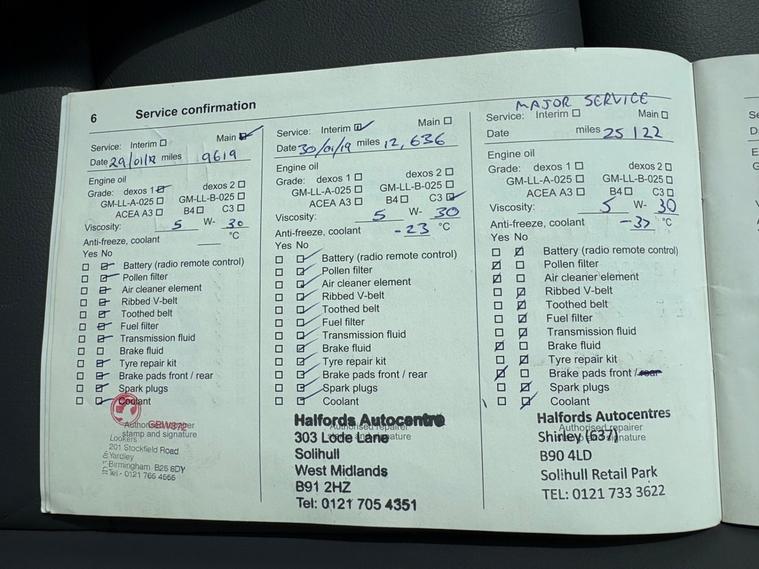 6 Service confirmation
Service: Interim Main
Date 29/01/18 miles 9619
Engine oil
Grade: dexos 1 dexos 2
GM-LL-A-025 GM-LL-B-025
ACEA A3 B4 C3
Viscosity: 5 W- 30
Anti-freeze, coolant °C
Yes No
Battery (radio remote control)
Pollen filter
Air cleaner element
Ribbed V-belt
Toothed belt
Fuel filter
Transmission fluid
Brake fluid
Tyre repair kit
Brake pads front / rear
Spark plugs
Coolant
Authorised repairer
stamp and signature
Lookers
201 Stockfield Road
Yardley
Birmingham B25 8DY
Service: Interim Main
Date 30/01/19 miles 12,636
Engine oil
Grade: dexos 1 dexos 2
GM-LL-A-025 GM-LL-B-025
ACEA A3 B4 C3
Viscosity: 5 W- 30
Anti-freeze, coolant -23 °C
Yes No
Battery (radio remote control)
Pollen filter
Air cleaner element
Ribbed V-belt
Toothed belt
Fuel filter
Transmission fluid
Brake fluid
Tyre repair kit
Brake pads front / rear
Spark plugs
Coolant
Halfords Autocentre
Authorised repairer
303 Lode Lane
Solihull
West Midlands
B91 2HZ
Tel: 0121 705 4351
MAJOR SERVICE
Service: Interim Main
Date miles 25122
Engine oil
Grade: dexos 1 dexos 2
GM-LL-A-025 GM-LL-B-025
ACEA A3 B4 C3
Viscosity: 5 W- 30
Anti-freeze, coolant -37 °C
Yes No
Battery (radio remote control)
Pollen filter
Air cleaner element
Ribbed V-belt
Toothed belt
Fuel filter
Transmission fluid
Brake fluid
Tyre repair kit
Brake pads front / rear
Spark plugs
Coolant
Halfords Autocentres
Authorised repairer
Shirley (637)
B90 4LD
Solihull Retail Park
TEL: 0121 733 3622